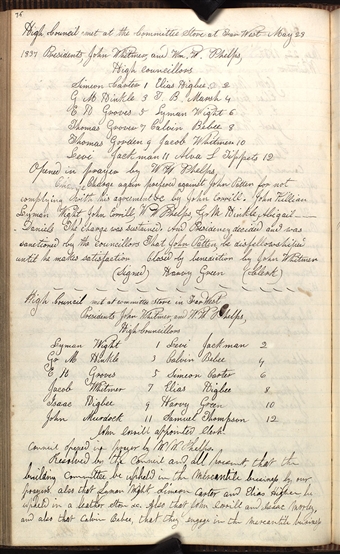 76
High Council met at the Committee Store at Far West May 28
1837 Presidents John Whitmer, and Wm. W. Phelps,
High councillors
Simeon Carter 1 Elias Higbee 2
G M Hinkle 3 T. B. Marsh 4
E H Groves 5 Lyman Wight 6
Thomas Groover 7 Calvin Bebee 8
Thomas Grooden 9 Jacob Whitmer 10
Levi Jackman 11 Alva L Tippets 12
Opened in prayer by W W Phelps,
Charge again prefered against John Patten for not
complying with his agreement by John Corrill.
Lyman Wight, John Corrill, W W Phelps, G. M. Hinkle, Abigail
Daniels The charge was sustained, And Presidency decided and was
sanctioned by the councillors That John Patten, be disfellowshiped
until he makes satisfaction closed by benediction by John Whitmer
(Signed) Harvy Green (Clerk)
High Council met at committee Store in Far West
Presidents John Whitmer, and W. W. Phelps,
High Councillors
Lyman Wight 1 Levi Jackman 2
Go M Hinkle 3 Calvin Bebee 4
E H Groves 5 Simeon Carter 6
Jacob Whitmer 7 Elias Higbee 8
Isaac Higbee 9 Harvy Green 10
John Murdock 11 Samuel Thompson 12
John Corrill appointed Clerk.
Council opened in prayer by W. W. Phelps,
Resolved by the Council and all present that the
building committee be upheld in the Mercantile business by our
prayers. also that Lyman Wight Simeon Carter and Elias Higbee be
upheld in a leather Store &c. Also that John Corrill and Isaac Morley,
and also that Calvin Bebee, that they engage in the mercantile business